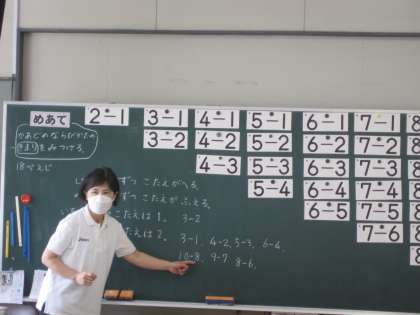 めあて
かあどのならびかたの
きまりをみつけよう
18ぺえじ
2-1 3-1 4-1 5-1 6-1 7-1 8
3-2 4-2 5-2 6-2 7-2 8
4-3 5-3 6-3 7-3 8
5-4 6-4 7-4 8
6-5 7-5 8
7-6 8
ずつ こたえがへる。
ずつ こたえがふえる。
たえは1。 3-2
たえは2。 3-1、4-2、5-3、6-4、
10-8、9-7 8-6、